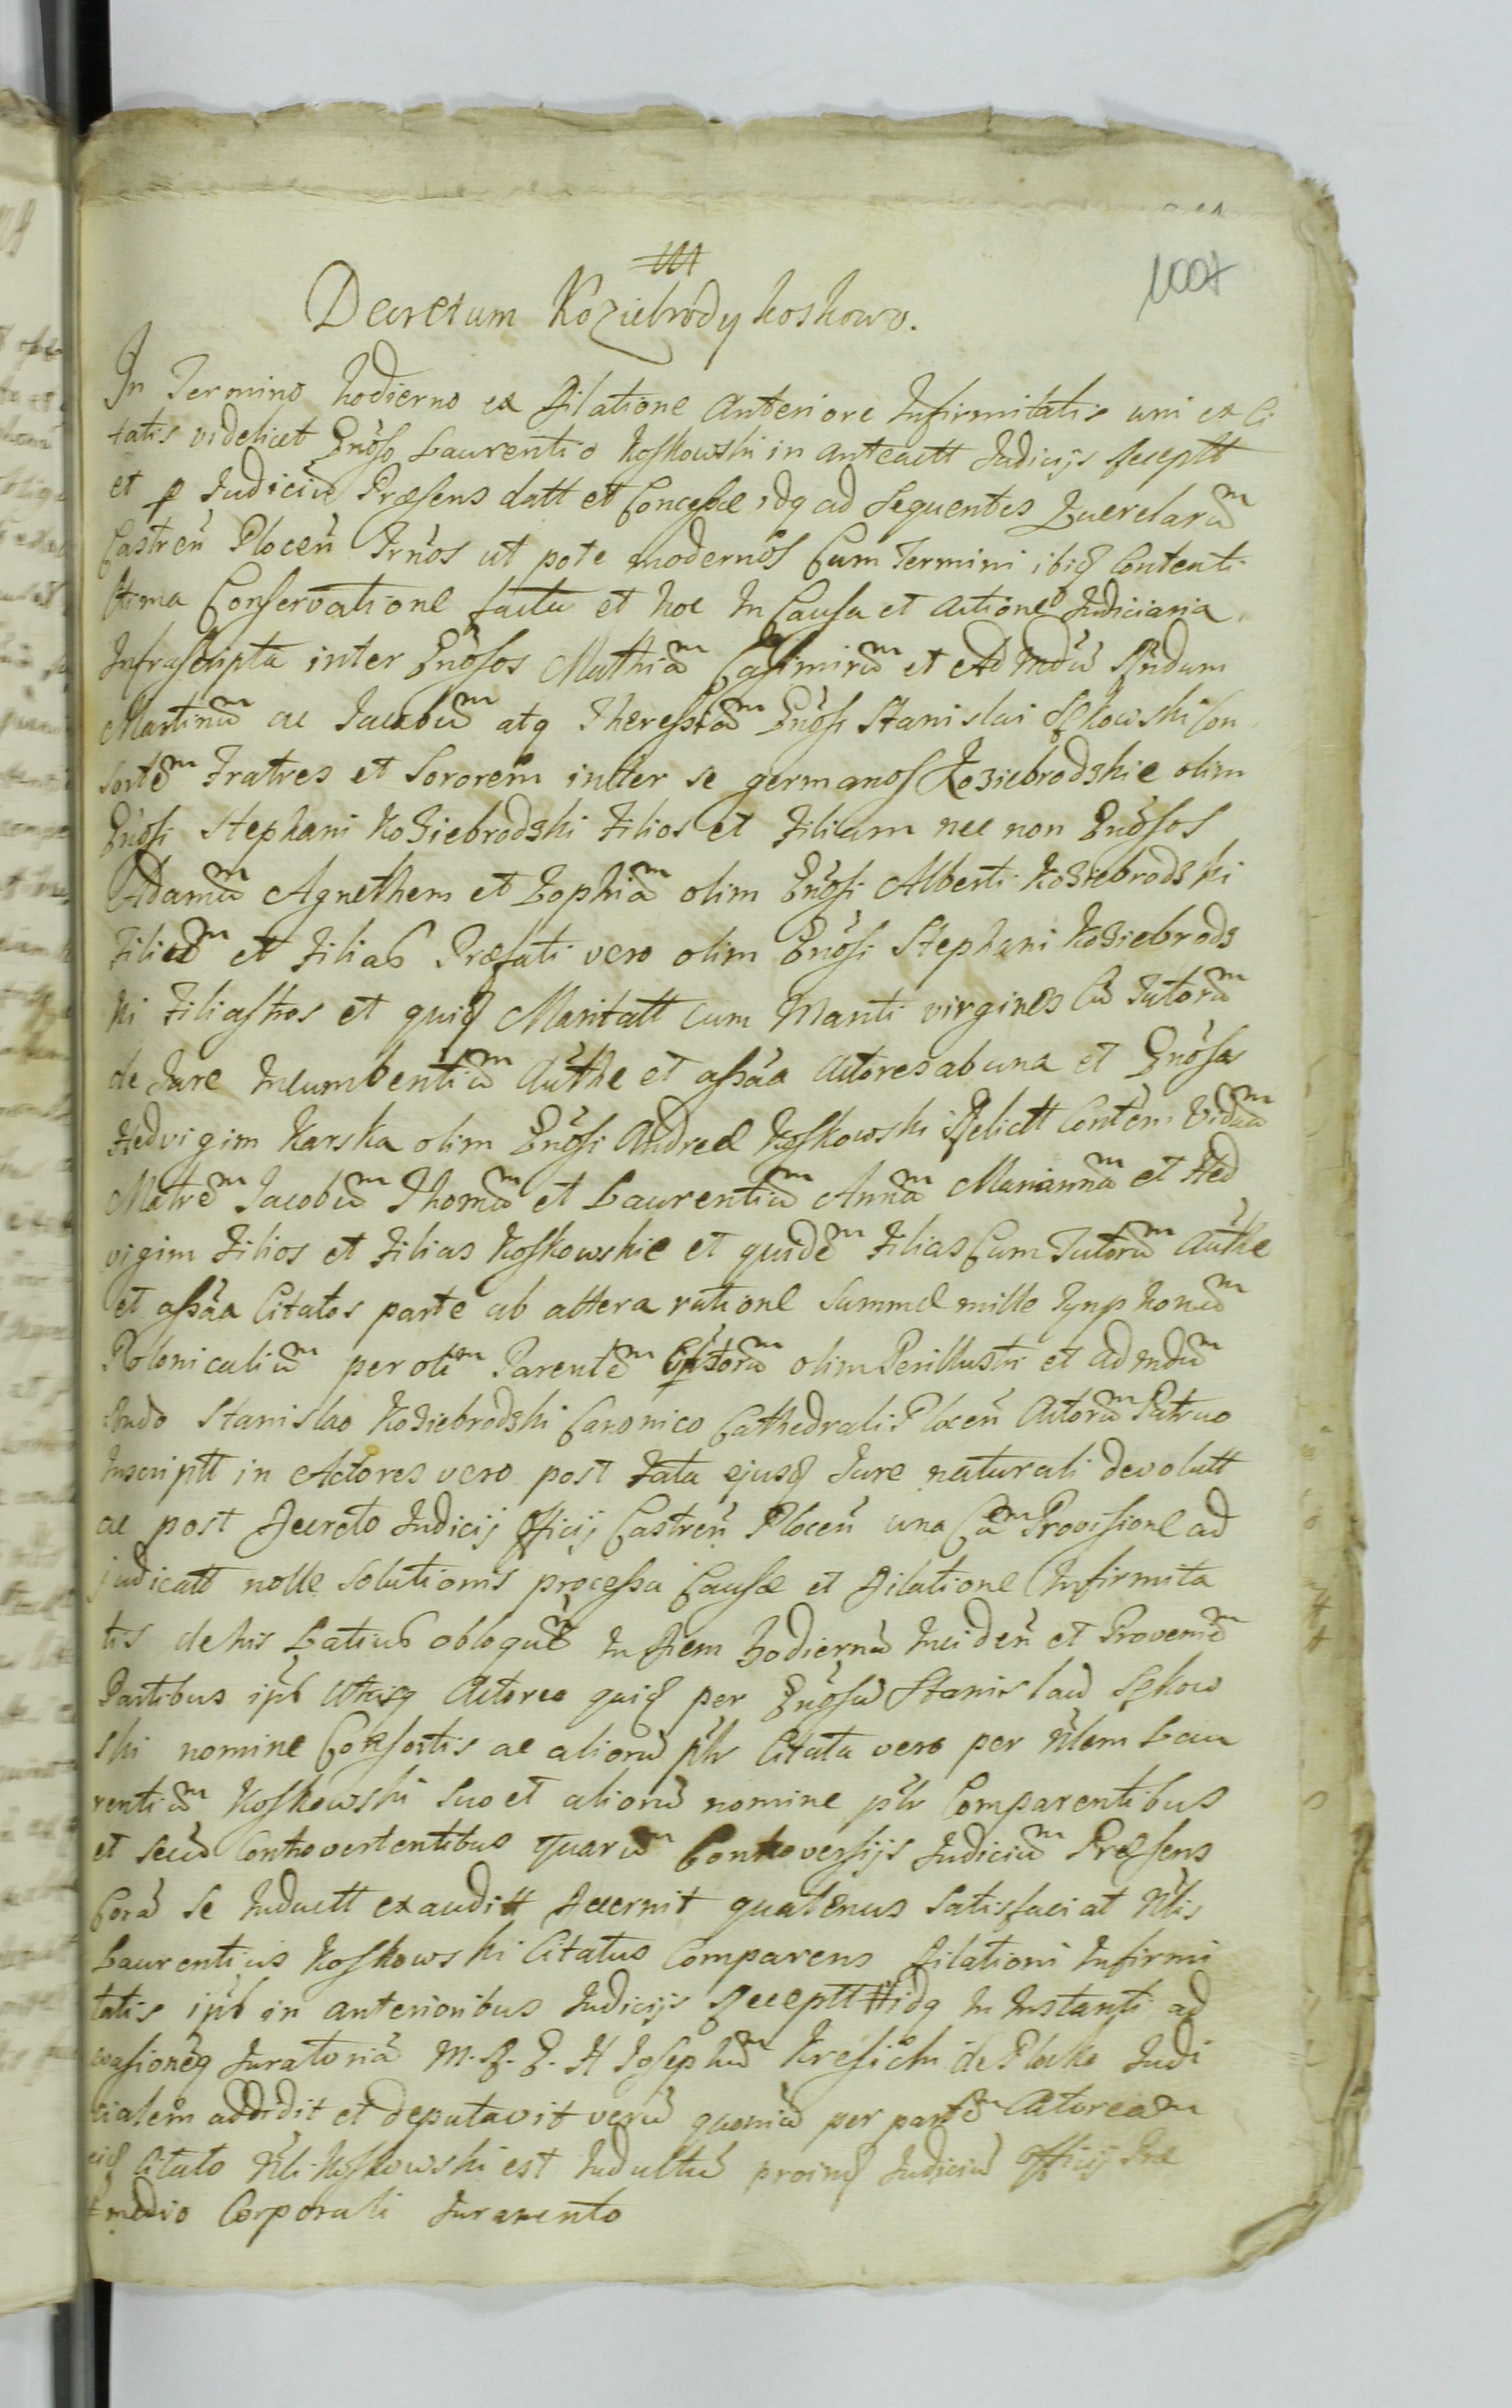 1007
Decretum Koziebrody koskowo.
In Termino hodierno ex Dilatione Anteriore Infirmitatis uni ex Ci
tatis videlicet Gnoso Laurentio Koskowski in anteactt Judicijs Receptt
et p Judiciu Præsens datt et Concessæ idq ad sequentes Querelarum
Castren Plocen Trnos ut pote modernos Cum Termini ibiq Contenti
Conservatione facta et hoc In Causa et actione Judiciaria
Infrascripta inter Gnosos Mathiam Casimirum et Ad mdu Rndum
Martinum ac Jacobum atq Theressiam Gnosi Stanislai Sękowski Con
sortem Fratres et Sororem inter se germanos Koziebrodzkie olim
Gnosi Stephani Koziebrodzki Filios et Filiam nec non Gnosos
Adamum Agnethem et Zophiam olim Gnosi Alberti Koziebrodzki
Filium et Filias Præfati vero olim Gnosi Stephani Koziebrodz
ki Filiastros et quiq Maritatt cum Mariti virgines Cu Tutorum
de Jure Incumbentium Authe et assaa Actores ab una et Gnosos
Hedvigim Karska olim Gnosi Andreæ Koskowski Relictt Contem Viduam
Matrem Jacobum Thomam et Laurentium Annam Mariannam et Hed
vigim Filios et Filias Koskowskie et quidem Filias Cum Tutorum Authe
et assaa Citatos parte ab altera ratione Summæ mille Tynphonum
Polonicalium per olim Parentem olim Perillustri et ad mdum
Rndo Stanislao Koziebrodzki Canonico Cathedrali Plocen Actorum Patruo
Inscriptt in Actores vero post Fata ejusq Jure naturali devolutt
ac post Decreto Judicij Officij Castren Plocen una Cum Provisione ad
judicatt nolle solutionis processu Causæ et Dilatione Infirmita
tis de his Latius oblque In Diem hodiernu Inciden et Provenien
Partibus ipis Utrisq Actorea quiq per Gnosu Stanislau Sękow
ski nomine Consortis ac alioru plr Citata vero per Nlem Lau
rentium Koskowski suo et alioru nomine plr Comparentibus
et secu Controvertentibus quarum Controversijs Judicium Præsens
Cora se Inductt exauditt Decernit quatenus satisfaciat Nlis
Laurentius Koskowski Citatus Comparens Dilationi Infirmi
tatis ipi in anterioribus Judicijs Receptt idq In Instanti ad
evasioneq Juratoria M. R. G. H Josephum de Plocko Judi
cialem addidit et deputavit veru quoniu per partem Actoream
eiq Citato Nli Koskowski est Indultu proinq Judiciu Officij Præ
medio Corporali Juramento